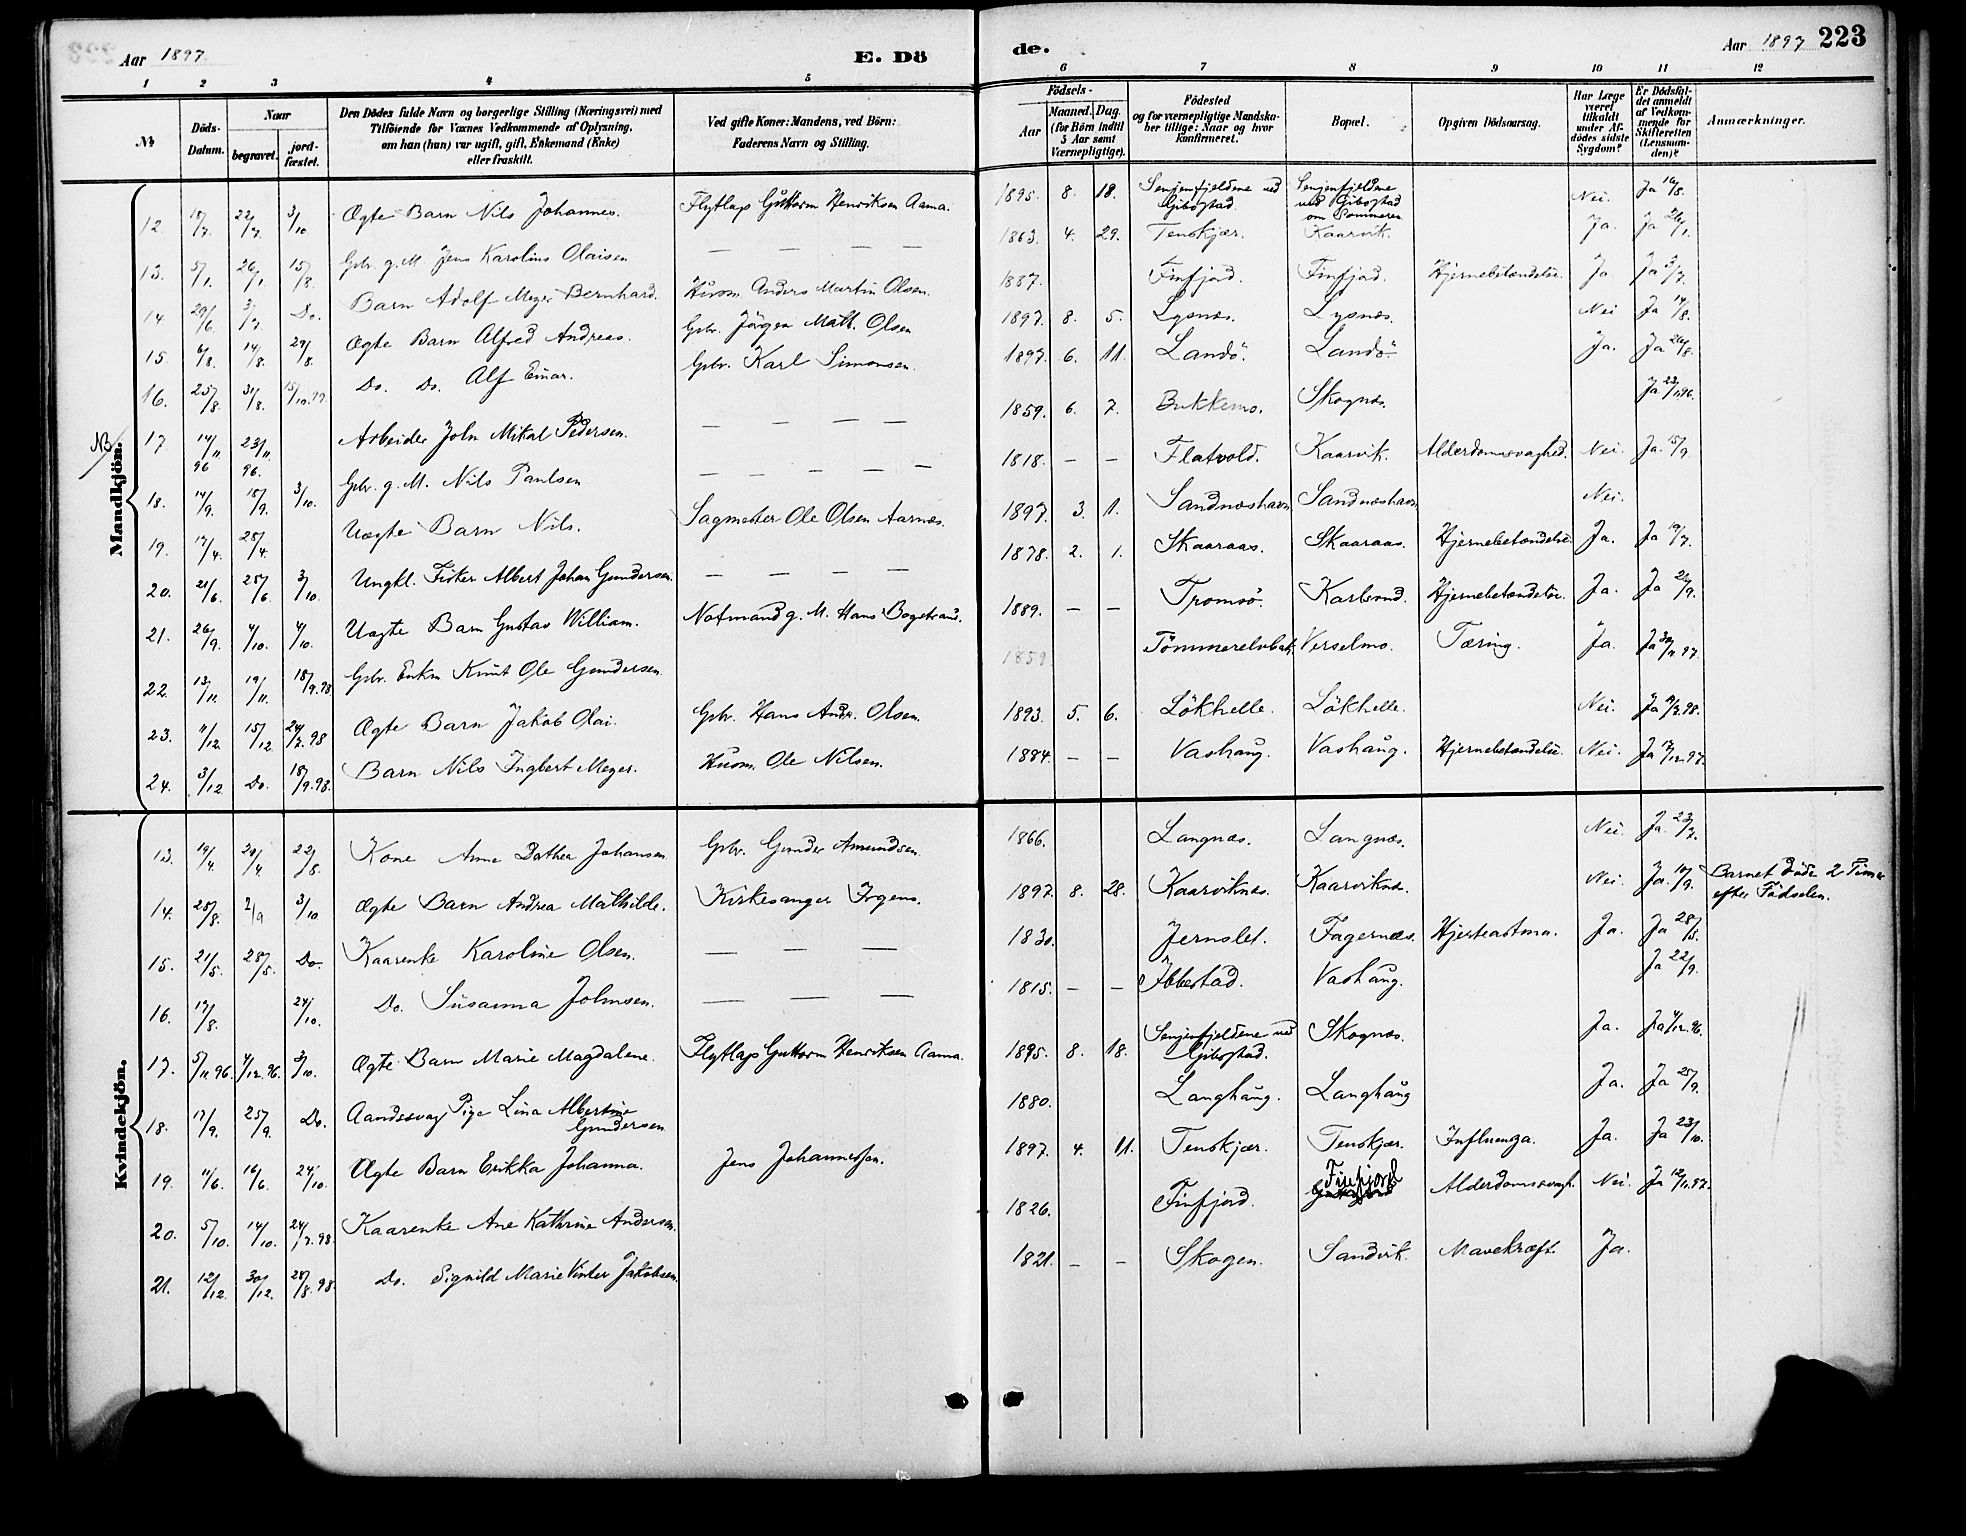 Aar 1897
E. Dö
de.
Aar 1897 223
1 2 3 4 5 6 7 8 9 10 11 12
№
Döds-Datum.
Naar
begravet.
jordfæstet.
Den Dödes fulde Navn og borgerlige Stilling (Næringsvei) med
Tilföiende for Voxnes Vedkommende af Oplysning,
om han (hun) var ugift, gift, Enkemand (Enke)
eller fraskilt.
Ved gifte Koner: Mandens, ved Börn:
Faderens Navn og Stilling.
Födsels-
Aar
Maaned. Dag.
(for Börn indtil
5 Aar samt
Værnepligtige).
Födested
og for værnepligtige Mandska-
ber tillige: Naar og hvor
konfirmeret.
Bopæl.
Opgiven Dödsaarsag.
Har Læge
været
tilkaldt
under Af-
dödes sidste
Sygdom?
Er Dödsfal-
det anmeldt
af Vedkom-
mende for
Skifteretten
(Lensman-
den)?
Anmærkninger.
Mandkjön.
12. 18/7. 22/7. 3/10. Ægte Barn Nils Johannes. Flytlap Guttorm Henriksen Aama. 1895. 8. 18. Senjenfjeldene ved Gibostad. Senjenfjeldene ved Gibostad om Sommeren Nei. Ja 16/8.
13. 5/1. 26/1. 15/8. Gbr. g. M. Jens Karolius Olaisen — — — 1863. 4. 29. Tenskjær. Kaarvik. Ja. Ja 26/1.
14 29/6. 3/7. Do. Barn Adolf Meyer Bernhard. Husm. Anders Martin Olsen. 1887. Finfjord. Finfjord. Hjernebetændelse. Ja. Ja 3/7.
15. 6/8. 14/8. 29/8. Ægte Barn Alfred Andreas. Gbr. Jörgen Math. Olsen 1897. 8. 5. Lysnæs. Lysnæs. Nei Ja 14/8.
16. 25/8. 31/8. 15/10.99. Do. Do. Alf Einar. Gbr. Karl Simonsen. 1897. 6. 11. Landö. Landö. Ja. Ja 26/8.
NB/ 17 14/11 96 23/11 96. Arbeider John Mikal Pedersen. — — — — 1859. 6. 7. Bukkemo. Skognæs. Ja 23/11 96.
18. 14/9. 18/9. 3/10. Gbr. g. M. Nils Paulsen — — — — 1818. — — Flatvold. Kaarvik. Alderdomssvaghed. Nei. Ja. 15/9.
19. 17/4. 25/4. Uægte Barn Nils. Sagmester Ole Olsen Aarnæs. 1897. 3. 11. Sandnæshavn Sandnæshavn Nei.
20. 21/6. 25/6. 3/10. Ungkl. Fisker Albert Johan Gundersen. — — — — 1878. 2. 1. Skaaraas. Skaaraas. Hjernebetændelse. Ja. Ja 19/7.
21. 26/9. 4/10. 4/10. Uægte Barn Gustav William. Notmand g. M. Hans Bogstrand. 1889. — — Tromsö. Karlsrud. Hjernebetændelse. Ja. Ja 26/9.
22. 13/11. 19/11. 18/9.98 Gbr. Enkm Knut Ole Gundersen 1859 Tömmerelvbak. Verselmo. Tæring. Ja. Ja 30/11.97.
23. 11/12. 15/12. 24/7.98 Ægte Barn Jakob Olai. Gbr. Hans Andr. Olsen. 1893. 5. 6. Lökhelle. Lökhelle. Nei.
24. 3/12 Do. 18/9.98. Barn Nils Ingbert Meyer. Husm. Ole Nilsen. 1884. — — Vashaug. Vashaug. Hjernebetændelse. Nei. Ja 17/12.97.
Kvindekjön.
13. 19/4. 29/4. 22/8. Kone Anne Dorthea Johansen Gbr. Gunder Amundsen. 1866. Langnæs. Langnæs. Nei. Ja. 23/7.
14. 28/8. 2/9 3/10 Ægte Barn Andrea Mathilde. Kirkesanger Irgens. 1897. 8. 28. Kaarviknæs. Kaarviknæs. Nei. Ja. 10/9. Barnet döde 2 Timer efter Födselen.
15. 21/5. 28/5. Do. Kaarenke Karoline Olsen. — — — 1830. Jernslet. Fagernæs. Hjerteastma. Ja. Ja 28/5.
16. 17/8. 24/10. Do. Susanna Johnsen. — — — 1815. — — Ibbestad. Vashaug. Ja 22/9.
17. 5/11 96. 4/12.96. 3/10. Ægte Barn Marie Magdalene. Flytlap Guttorm Henriksen Aama. 1895. 8. 18. Senjenfjeldene ved Gibostad. Skognæs. Ja. Ja 4/12.96.
18. 17/9. 25/9. Do. Aandssvag Pige Lina Albertine Gundersen 1880. Langhaug. Langhaug Ja. Ja 25/9.
19. 11/6. 16/6. 24/10 Ægte Barn Erikka Johanna. Jens Johannessen. 1897. 4. 11. Tenskjær. Tenskjær. Influenza. Ja. Ja 23/10.
20. 5/10. 14/10. 24/7.98. Kaarenke Ane Kathrine Andersen. 1826. Finfjord. Finfjord Alderdomssvagh. Nei. Ja 12/11.97.
21. 12/12. 30/12. 28/8.98. Do. Signild Marie Vinter Jakobsen. 1821. — — Skogen. Sandvik. Mavekræft. Ja.